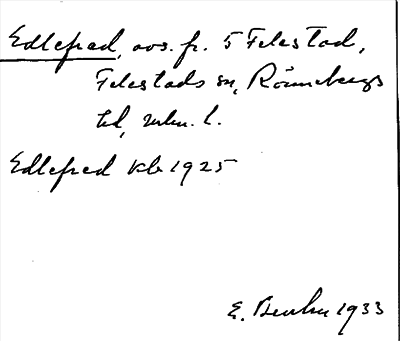 Edlefred, avs. fr. 5 Felestad,
Felestads sn, Rönnebergs
hd, mlm. l.
Edlefred kb 1925
E. 1933